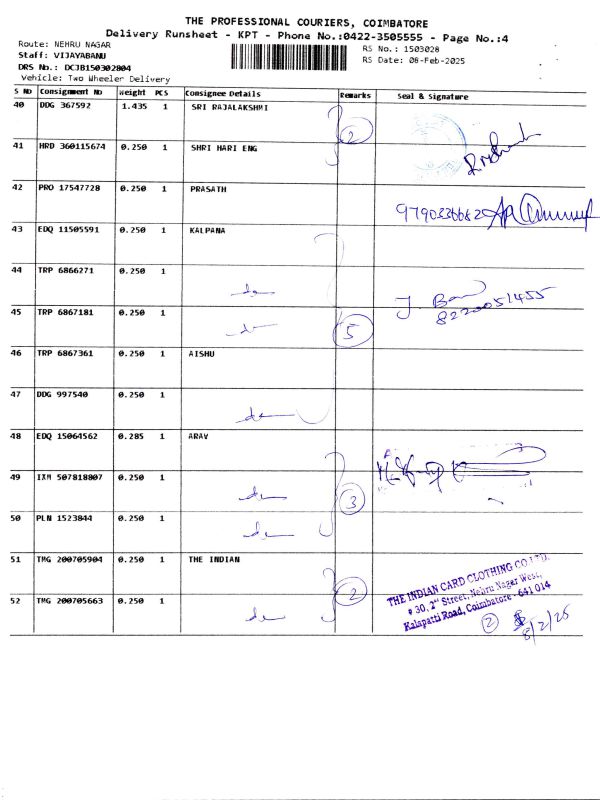 THE PROFESSIONAL COURIERS, COIMBATORE
Delivery Runsheet - KPT - Phone No.:0422-3505555 - Page No.:4
Route: NEHRU NAGAR
Staff: VIJAYABANU
DRS No.: DCJB150302804
Vehicle: Two Wheeler Delivery
RS No.: 1503028
RS Date: 08-Feb-2025
S NO Consignment No Weight PCS Consignee Details Remarks Seal & Signature
40 DDG 367592 1.435 1 SRI RAJALAKSHMI
2
41 HRD 360115674 0.250 1 SHRI HARI ENG
42 PRO 17547728 0.250 1 PRASATH
9790236682
43 EDQ 11505591 0.250 1 KALPANA
44 TRP 6866271 0.250 1
45 TRP 6867181 0.250 1
8220051455
5
46 TRP 6867361 0.250 1 AISHU
47 DDG 997540 0.250 1
48 EDQ 15064562 0.285 1 ARAV
49 IXM 507818807 0.250 1
3
50 PLN 1523844 0.250 1
51 TMG 200705904 0.250 1 THE INDIAN
2
52 TMG 200705663 0.250 1
THE INDIAN CARD CLOTHING CO.LTD.
# 30, 2nd Street, Nehru Nagar West,
Kalapatti Road, Coimbatore - 641 014
2
8/2/25